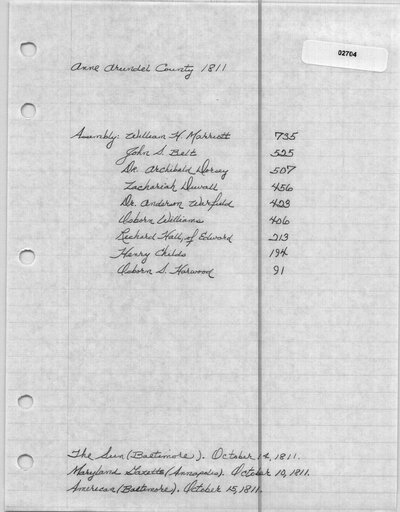 02704
Anne Arundel County 1811
Assembly: William H. Marriott 735
John S. Belt 525
Dr. Archibald Dorsey 507
Zachariah Duvall 456
Dr. Anderson Warfield 423
Osborn Williams 406
Richard Hall, of Edward 213
Henry Childs 194
Osborn S. Harwood 91
The Sun (Baltimore). October 14, 1811.
Maryland Gazette (Annapolis). October 10, 1811.
American (Baltimore). October 15, 1811.